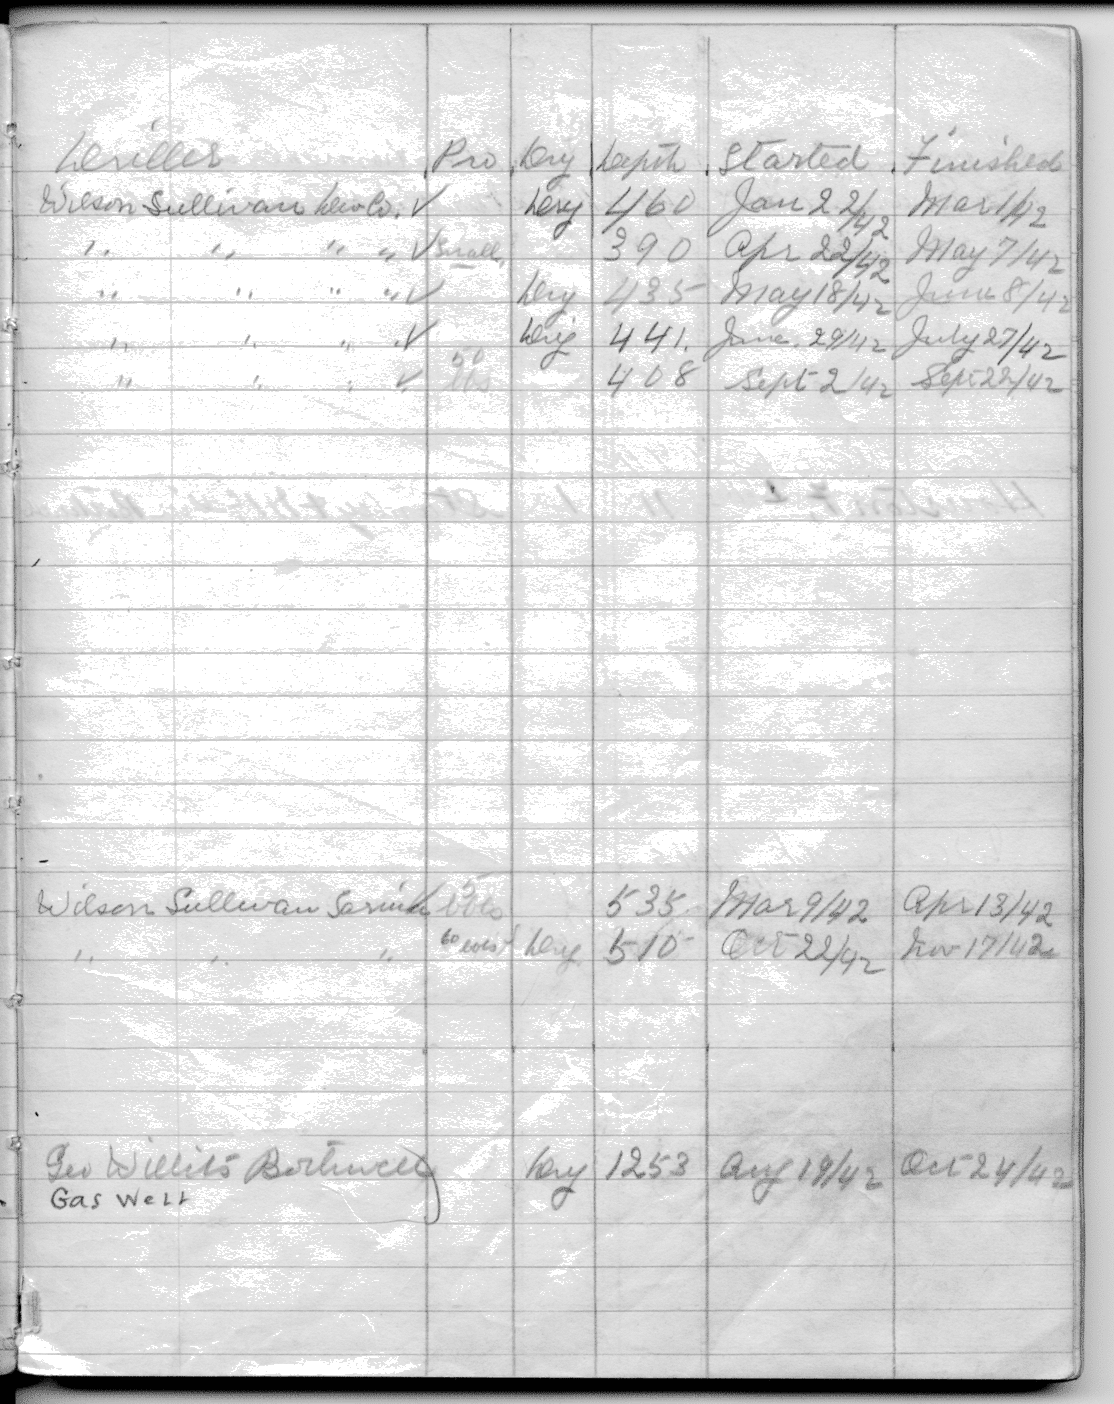 Driller Pro Dry Depth Started Finished
Wilson Sullivan Dev Co. ✓ Dry 460 Jan 22/42 Mar 1/42
" " " " ✓ Small. 390 Apr 22/42 May 7/42
" " " " ✓ Dry 435 May 18/42 June 8/42
" " " " ✓ Dry 441. June 29/42 July 27/42
" " " " ✓ 50 bbls 408 Sept 2/42 Sept 22/42
Wilson Sullivan Sarnia 5 bbls 535 Mar 9/42 Apr 13/42
" " " 60 Dry 510 Oct 22/42 Nov 17/42
Geo Willits Bothwell Dry 1253 Aug 19/42 Oct 24/42
Gas Well